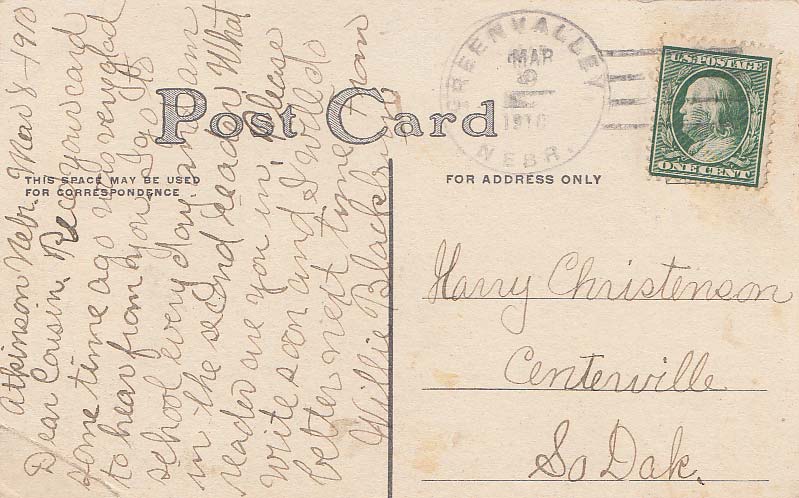 Atkinson Nebr. Mar 8-1910
Dear Cousin. Rece your card
some time ago was very glad
to hear from you. I go to
school every day and am
in the second reader What
reader are you in, please
write soon and I will do
better next time from
Willie Blackburn
Post Card
THIS SPACE MAY BE USED
FOR CORRESPONDENCE
FOR ADDRESS ONLY
GREENVALLEY
MAR
9
1910
NEBR.
U.S. POSTAGE
ONE CENT
Harry Christenson
Centerville
So Dak.